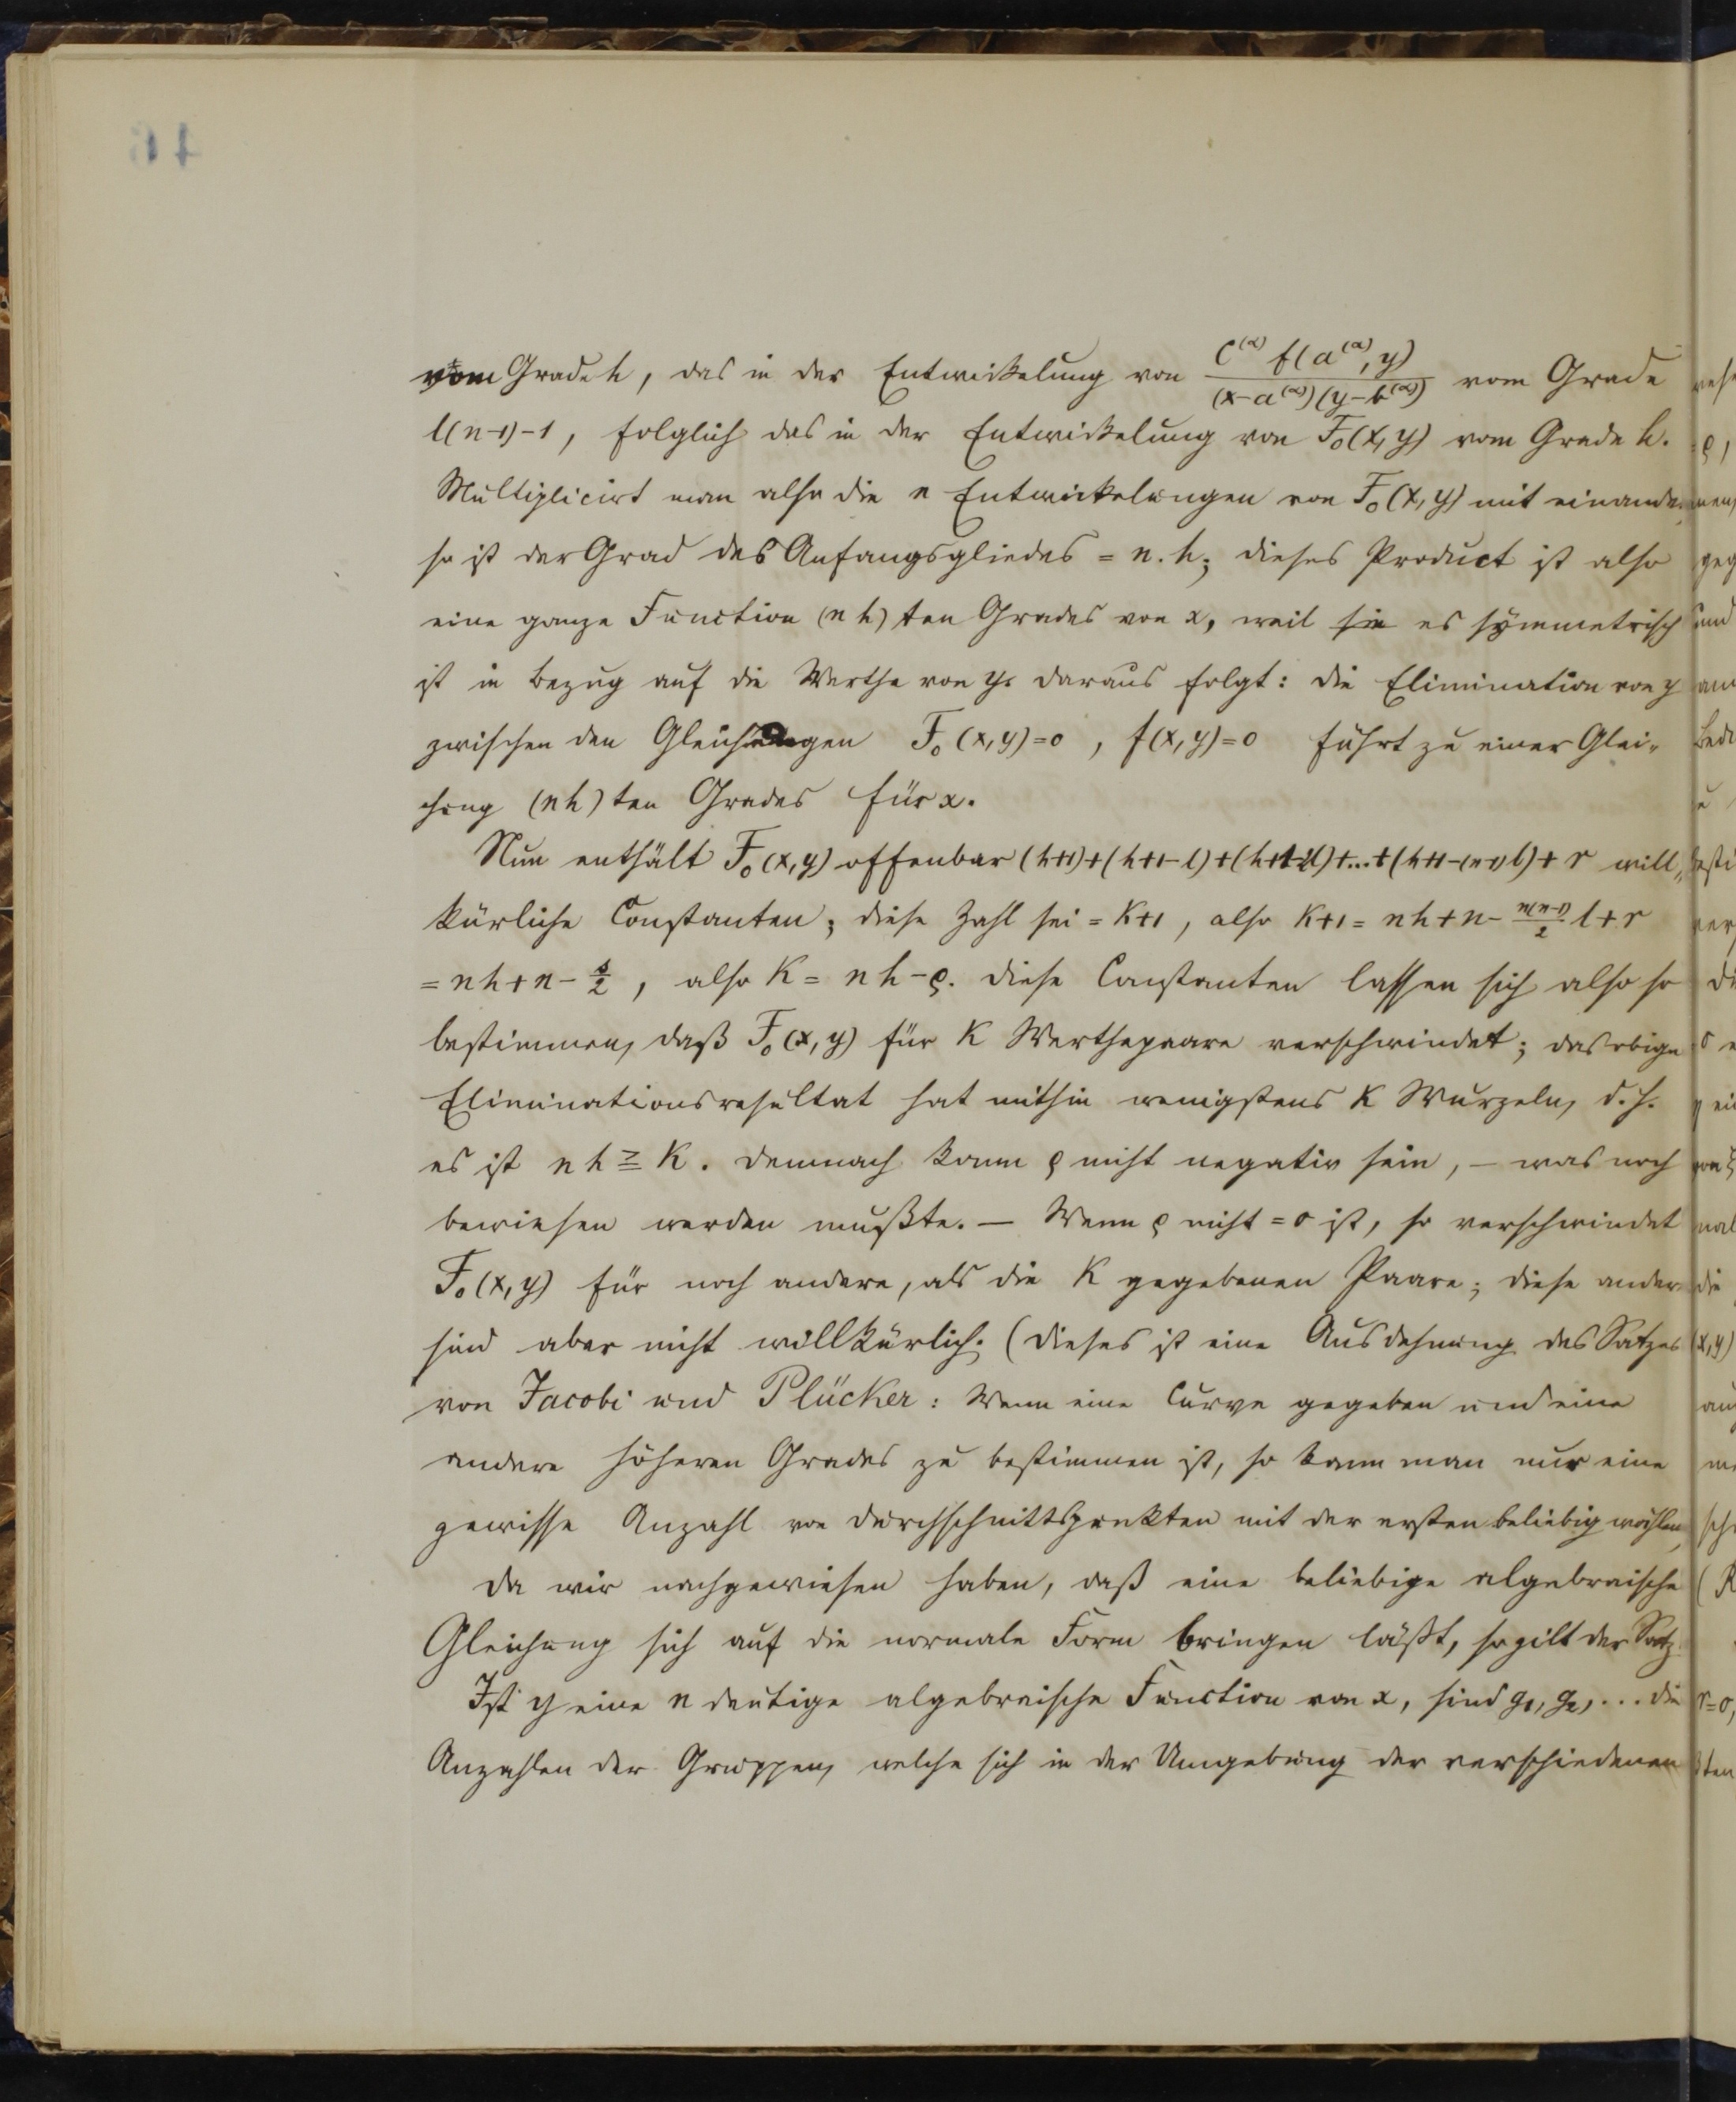 vom Grade h, das in der Entwickelung von C^(α) f(a^(α), y) / (x-a^(α))(y-b^(α)) vom Grade
l(n-1)-1, folglich das in der Entwickelung von F₀(x,y) vom Grade h.
Multiplicirt man also die n Entwickelungen von F₀(x,y) mit einander,
so ist der Grad des Anfangsgliedes = n.h; dieses Product ist also
eine ganze Function (nh)ten Grades von x, weil sie es symmetrisch
ist in Bezug auf die Werthe von y. daraus folgt: die Elimination von y
zwischen den Gleichungen F₀(x,y)=0, f(x,y)=0 führt zu einer Glei-
chung (nh)ten Grades für x.
Nun enthält F₀(x,y) offenbar (h+1)+(h+1-l)+(h+1-2l)+...+(h+1-(n-1)l)+r will-
kürliche Constanten; diese Zahl sei = K+1, also K+1 = nh+n- n(n-1)/2 l+r
= nh+n- s/2, also K = nh-ρ. diese Constanten lassen sich also so
bestimmen, daß F₀(x,y) für K Werthepaare verschwindet; das obige
Eliminationsresultat hat mithin wenigstens K Wurzeln, d.h.
es ist nh ≧ K. demnach kann ρ nicht negativ sein, – was noch
bewiesen werden mußte. – Wenn ρ nicht = 0 ist, so verschwindet
F₀(x,y) für noch andere, als die K gegebenen Paare; diese andern
sind aber nicht willkürlich. (dieses ist eine Ausdehnung des Satzes
von Jacobi und Plücker: Wenn eine Curve gegeben und eine
andere höheren Grades zu bestimmen ist, so kann man nur eine
gewisse Anzahl von Durchschnittspunkten mit der ersten beliebig wählen
Da wir nachgewiesen haben, daß eine beliebige algebraische
Gleichung sich auf die normale Form bringen läßt, so gilt der Satz
Ist y eine n deutige algebraische Function von x, sind g₁, g₂, ... die
Anzahlen der Gruppen, welche sich in der Umgebung der verschiedenen